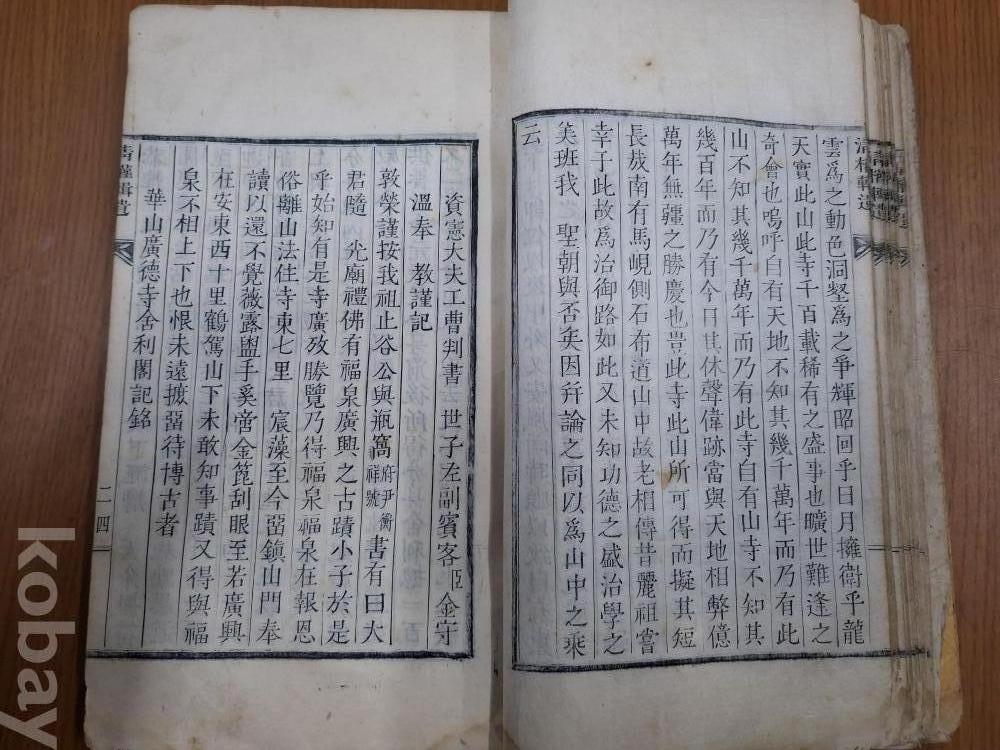 清權輯遺
雲爲之動色洞壑爲之爭輝昭回乎日月擁衛乎龍
天實此山此寺千百載稀有之盛事也曠世難逢之
奇會也嗚呼自有天地不知其幾千萬年而乃有此
山不知其幾千萬年而乃有此寺自有山寺不知其
幾百年而乃有今日其休聲偉跡當與天地相弊億
萬年無疆之勝慶也豈此寺此山所可得而擬其短
長哉南有馬峴側石布道山中故老相傳昔麗祖嘗
幸于此故爲治御路如此又未知功德之盛治學之
美班我 聖朝與否矣因幷論之同以爲山中之乘
云
資憲大夫工曹判書 世子左副賓客臣金守
溫奉 教謹記
敦榮謹按我祖止谷公與瓶窩府尹衡祥號書有曰大
君隨 光廟禮佛有福泉廣興之古蹟小子於是
乎始知有是寺廣攷勝覽乃得福泉福泉在報恩
俗離山法住寺東七里 宸藻至今留鎭山門奉
讀以還不覺薇露盥手奚啻金篦刮眼至若廣興
在安東西十里鶴駕山下未敢知事蹟又得與福
泉不相上下也恨未遠摭留待博古者
華山廣德寺舍利閣記銘
清權輯遺
二四
kobay